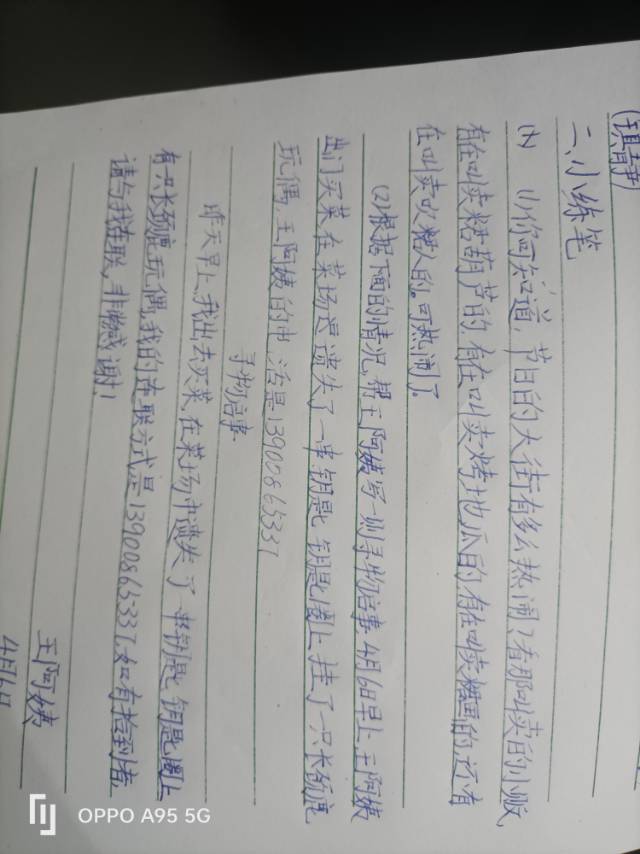 (镇静)
二、小练笔
(1) 你可知道，节日的大街有多么热闹？看那叫卖的小贩，
有在叫卖糖葫芦的，有在叫卖烤地瓜的，有在叫卖糖画的，还有
在叫卖吹糖人的。可热闹了。
(2)根据下面的情况，帮王阿姨写一则寻物启事。4月6日早上，王阿姨
出门买菜，在菜场里遗失了一串钥匙，钥匙圈上挂了一只长颈鹿
玩偶，王阿姨的电话是13900865337
寻物启事
昨天早上，我出去买菜，在菜场中遗失了一串钥匙，钥匙圈上
有一只长颈鹿玩偶，我的连联方式是13900865337，如有捡到者，
请与我连联，非常感谢！
王阿姨
4月6日
OPPO A95 5G